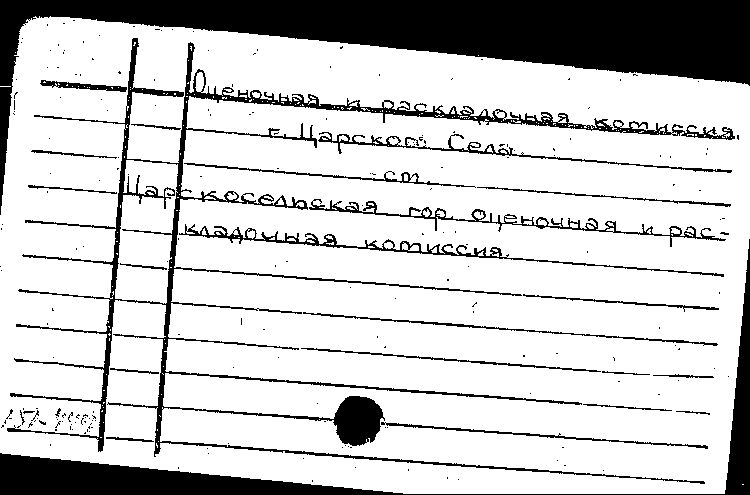 Оценочная и раскладочная комиссия
г. Царского Села.
см.
Царскосельская гор. оценочная и рас-
кладочная комиссия.